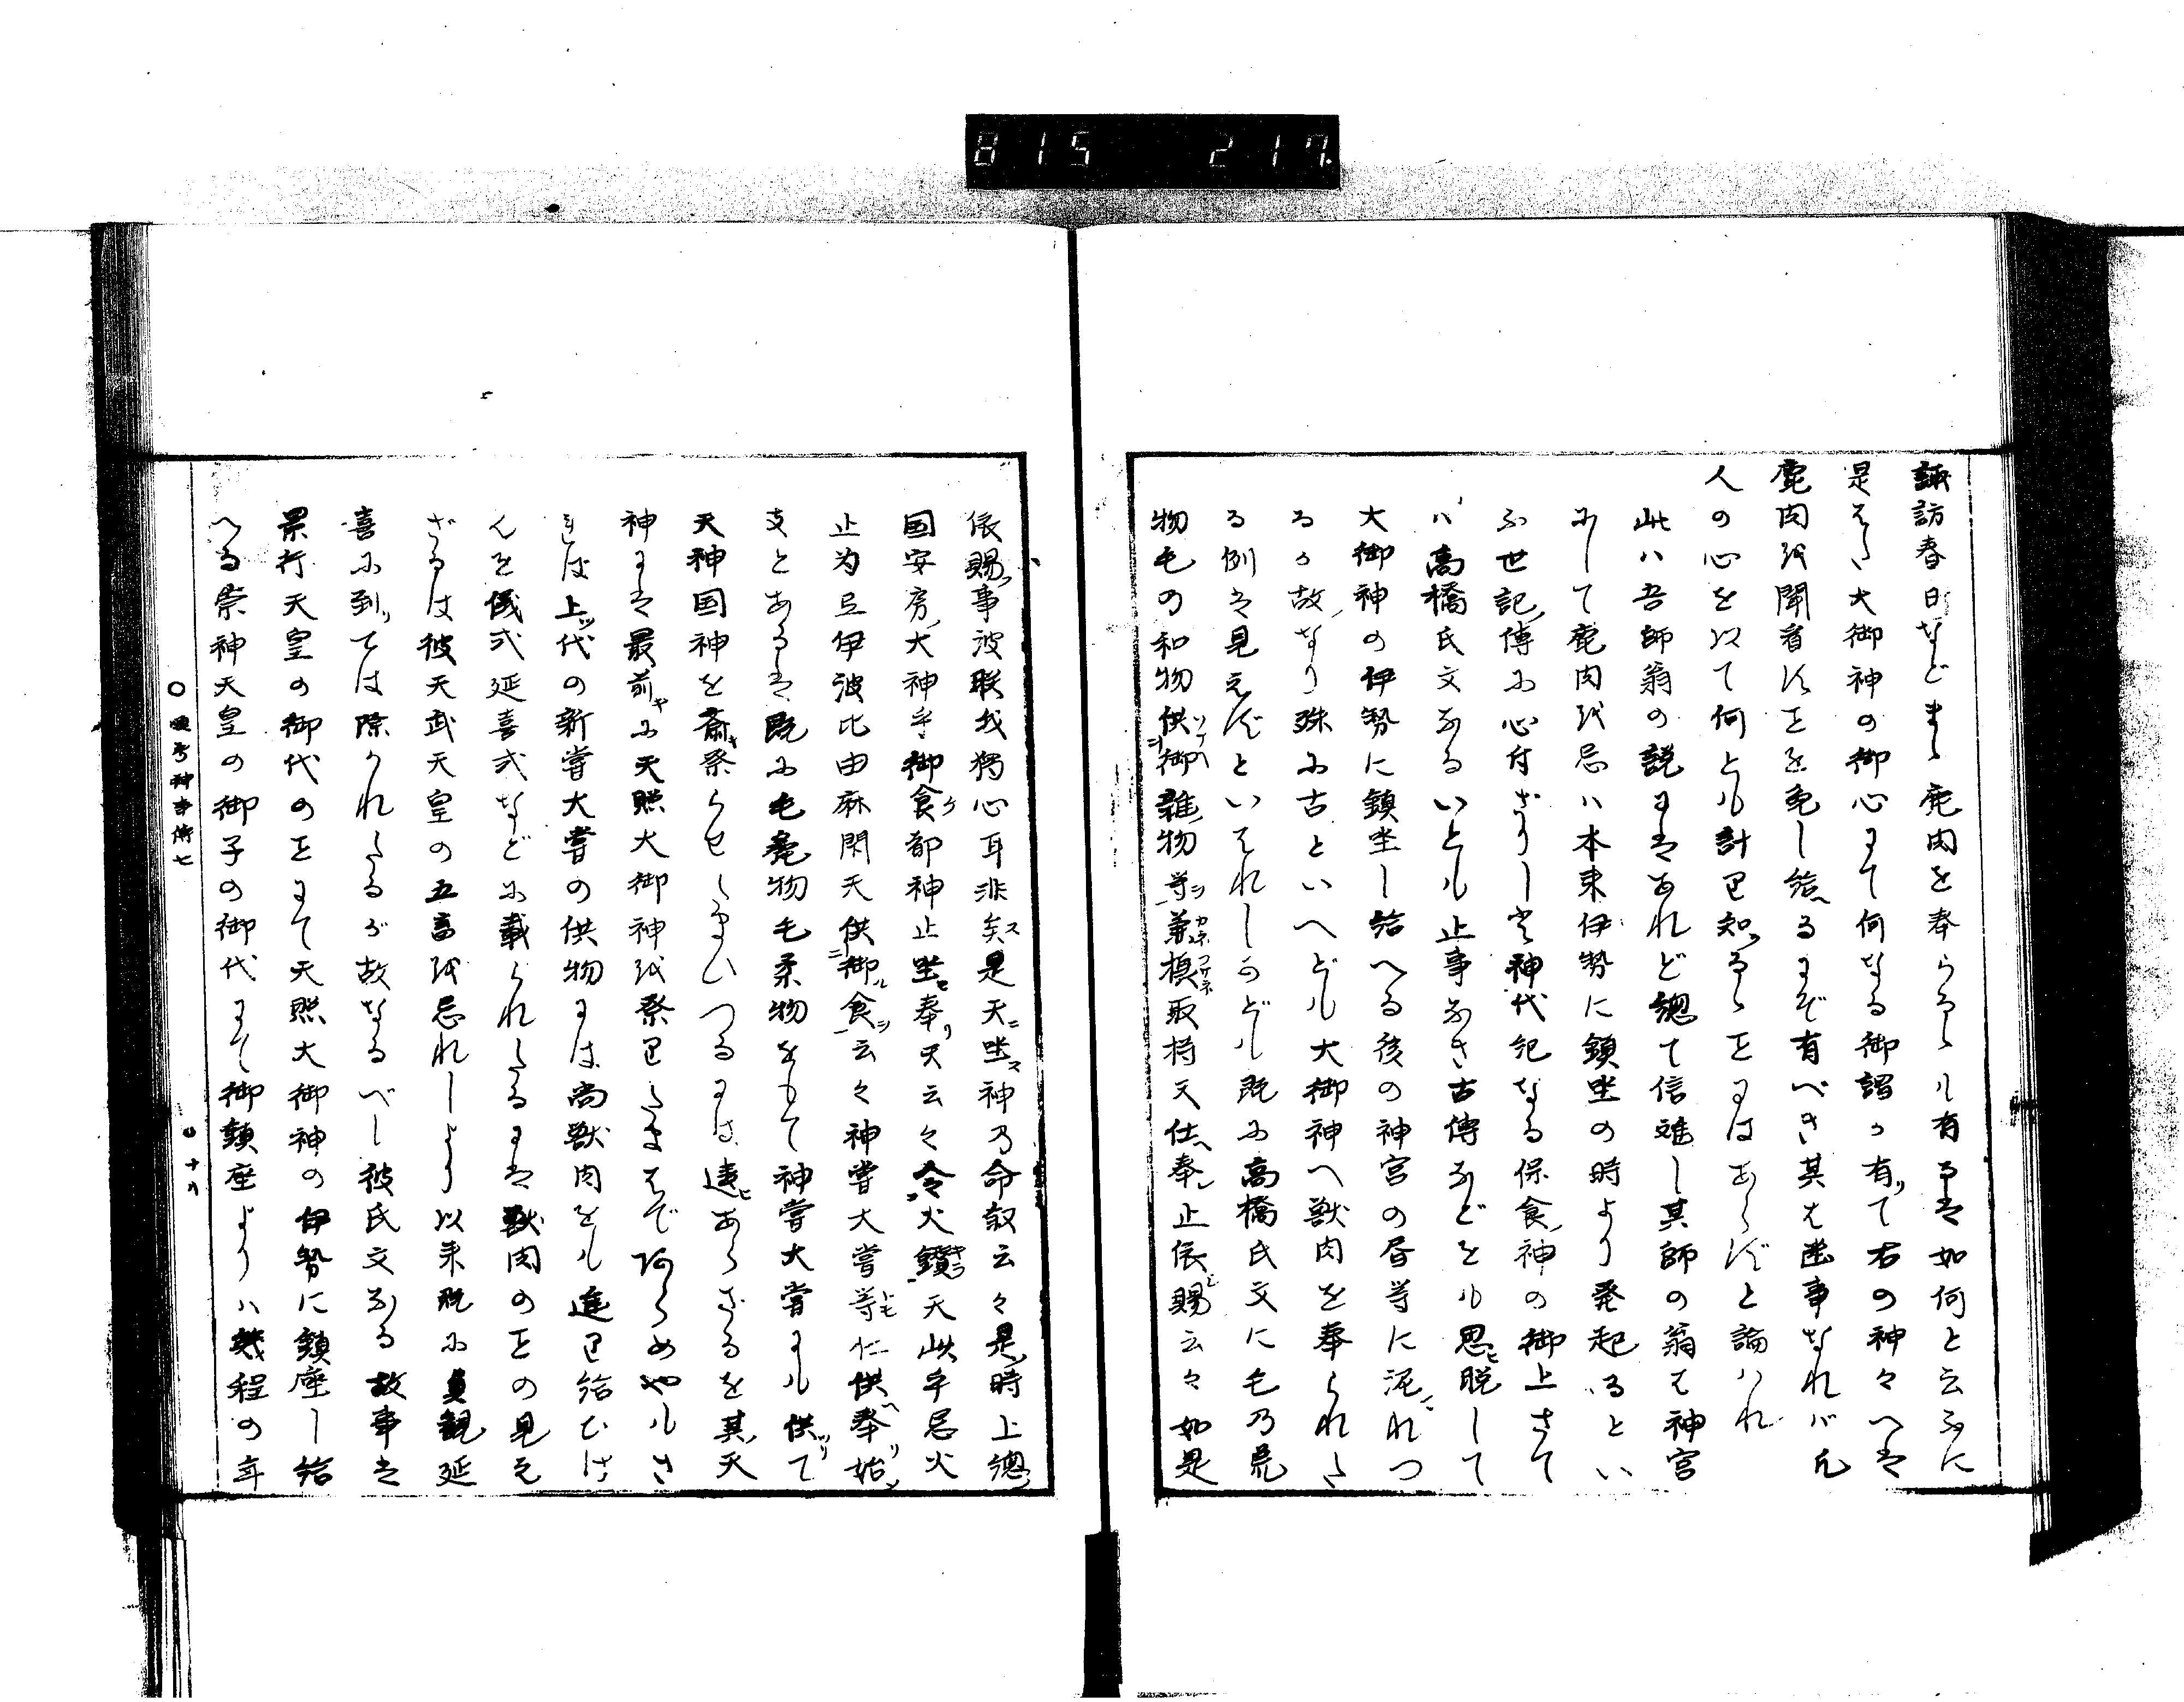 815 217
諏訪春日などまた鹿肉を奉らるゝも有るは如何と云ふに
是はた大御神の御心にて何なる御謂か有りて右の神々へは
鹿肉を聞看すことを免し給へるにぞ有べき其は幽事なれバ凡
人の心を以て何とも計り知るゝことにはあらずと論はれ
此ハ吾師翁の説にはあれど總て信難し其師の翁も神宮
にして鹿肉を忌ハ本来伊勢に鎮坐の時より発起るとい
ふ世記傳に心付ざりし也神代紀なる保食神の御上さて
ハ高橋氏文なるいとも止事なき古傳などをも思ひ脱して
大御神の伊勢に鎮坐し給へる後の神宮の層等に泥れつ
るか故なり殊に古といへども大御神へ獣肉を奉られた
る例は見えずといはれしかども既に高橋氏文に毛乃荒
物毛の和物供御雑物等兼摸取持天仕奉止依賜云々如是
依賜事波朕我獨心耳非矣是天坐神乃命叙云々是時上總
国安房大神乎御食都神止坐奉天云々令火鑽天此乎忌火
止为弖伊波比由麻閇天供御食云々神嘗大嘗等仁供奉始
支とあるは既に毛麁物毛柔物をもて神嘗大嘗にも供りて
天神国神を齋祭らせたまひつるには違ひあらざるを其天
神には最前に天照大御神を祭りたまはで阿らめやもさ
れば上代の新嘗大嘗の供物には尚獣肉をも進り給ひけ
んを儀式延喜式などに載られたるには獣肉のことの見え
ざるは彼天武天皇の五畜を忌れしより以来既に貞観延
喜に到りては除かれたるが故なるべし彼氏文なる故事は
景行天皇の御代のことにて天照大御神の伊勢に鎮座し給
へる崇神天皇の御子の御代にて御鎮座よりハ幾程の年
神事傳七